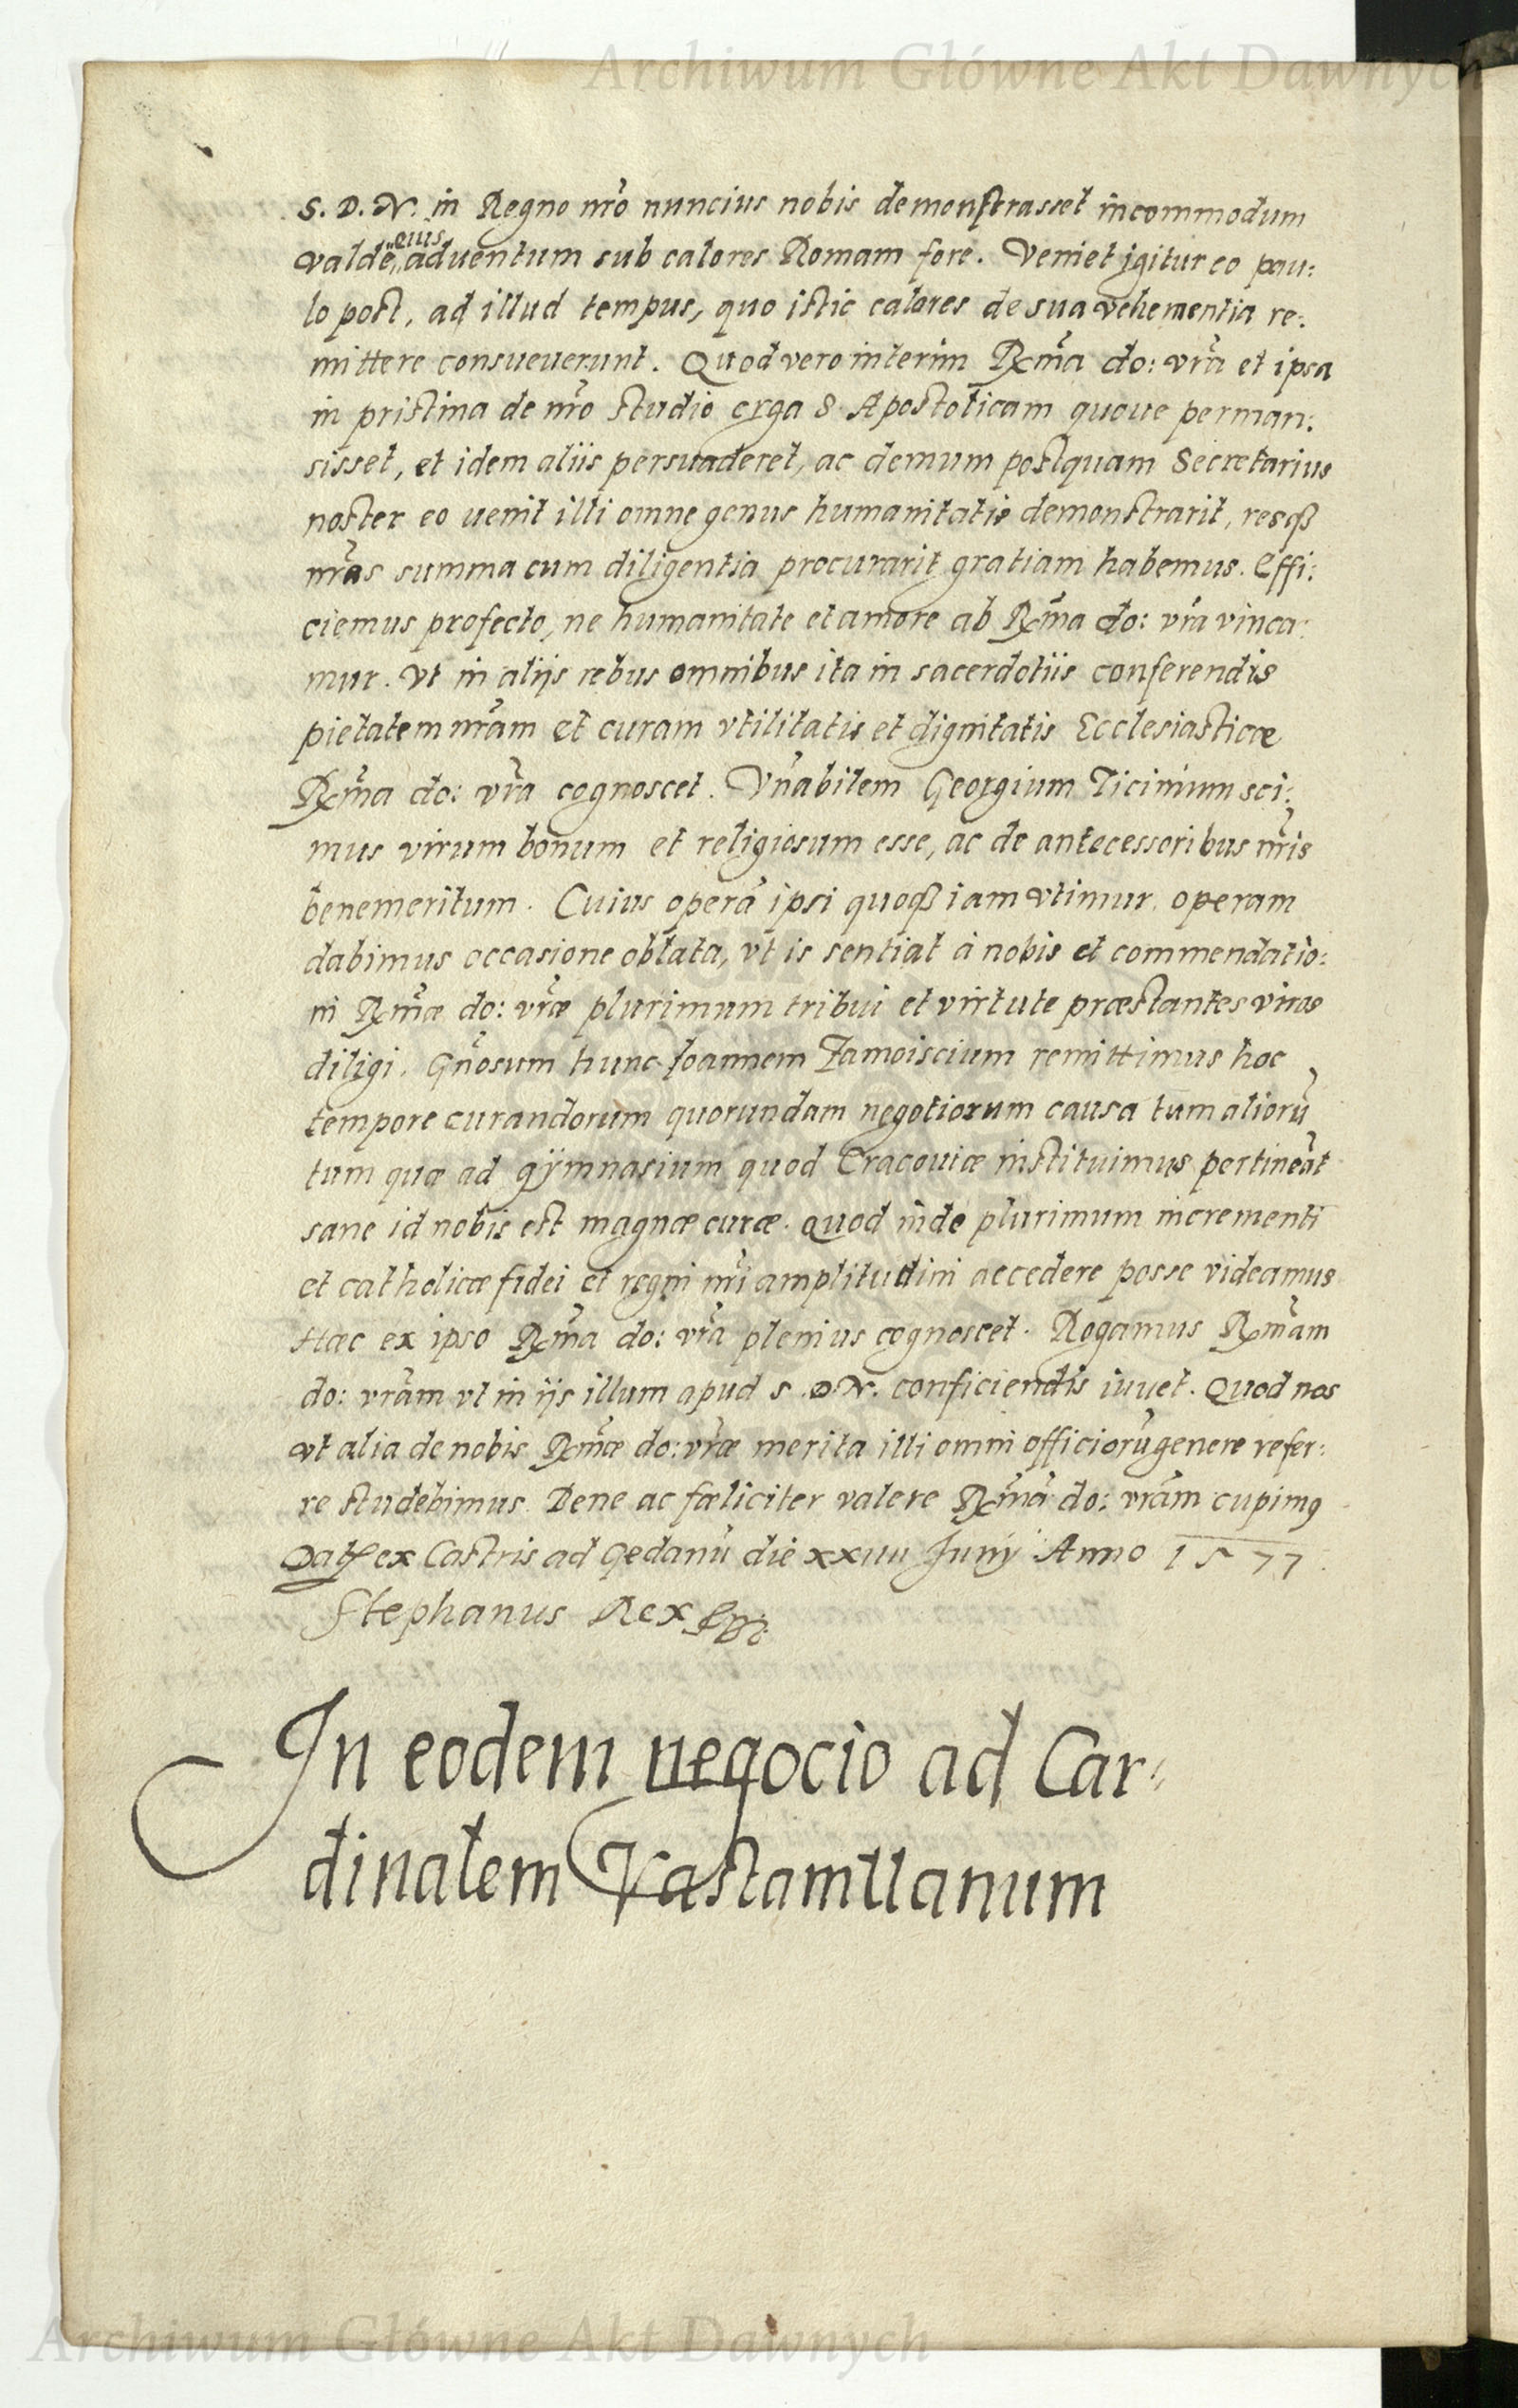 Archiwum Główne Akt Dawnych
S. D. N. in Regno nr̃o nuncius nobis demonstrasset incommodum
valde eius aduentum sub calores Romam fore. Veniet igitur eo pau:
lo post, ad illud tempus, quo istic calores de sua vehementia re:
mittere consueuerunt. Quod vero interim Rx̃ma do: vr̃a et ipsa
in pristina de nr̃o studio erga S. Apostolicam quoue perman:
sisset, et idem aliis persuaderet, ac demum postquam Secretarius
noster eo uenit illi omne genus humanitatis demonstrarit, resqꝫ
nr̃as summa cum diligentia procurarit gratiam habemus. Effi:
ciemus profecto, ne humanitate et amore ab Rx̃ma do: vr̃a vinca:
mur. Vt in alijs rebus omnibus ita in sacerdotiis conferendis
pietatem nr̃am et curam vtilitatis et dignitatis Ecclesiasticæ
Rx̃ma do: vr̃a cognoscet. Vñabilem Georgium Ticinium sci:
mus virum bonum et religiosum esse, ac de antecessoribus nr̃is
benemeritum. Cuius operã ipsi quoqꝫ iam vtimur. operam
dabimus occasione oblata, vt is sentiat à nobis et commendatio:
ni Rx̃mæ do: vr̃æ plurimum tribui et virtute præstantes viros
diligi. Gñosum hunc Ioannem Zamoiscium remittimus hoc
tempore curandorum quorundam negotiorum causa tum aliorũ
tum quæ ad gÿmnasium quod Cracouiæ instituimus pertineãt
sane id nobis est magnæ curæ. quod inde plurimum incrementi
et catholicæ fidei et regni nr̃i amplitudini accedere posse videamus
Hæc ex ipso Rx̃ma do: vr̃a plenius cognoscet. Rogamus Rx̃mam
do: vr̃am vt in ijs illum apud S. D. N. conficiendis iuuet. Quod nos
vt alia de nobis Rx̃mæ do: vr̃æ merita illi omni officiorũ genere refer:
re studebimus. Bene ac fæliciter valere Rx̃mã do: vr̃am cupimꝯ
Datꝭ ex Castris ad Gedanũ die xxiiii Junij Anno 1577.
Stephanus Rex
In eodem negocio ad Car:
dinalem Vastamllanum
Archiwum Główne Akt Dawnych